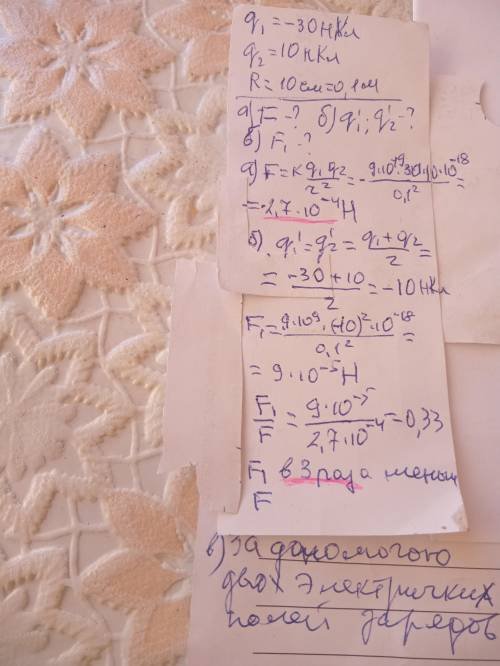 q₁ = -30 нКл
q₂ = 10 нКл
R = 10 см = 0,1 м
а) F - ? б) q₁'; q₂' - ?
в) F₁ - ?
а) F = k q₁q₂/r² = - 9·10⁺⁹·30·10·10⁻¹⁸/0,1² =
= -2,7·10⁻⁴ Н
б) q₁' = q₂' = (q₁ + q₂)/2 =
= (-30 + 10)/2 = -10 нКл
F₁ = 9·10⁹·(-10)²·10⁻¹⁸/0,1² =
= 9·10⁻⁵ Н
F₁/F = 9·10⁻⁵/2,7·10⁻⁴ = 0,33
F₁ в 3 раза меньш
F
в) за допомогою
двох электричких
полей зарядов